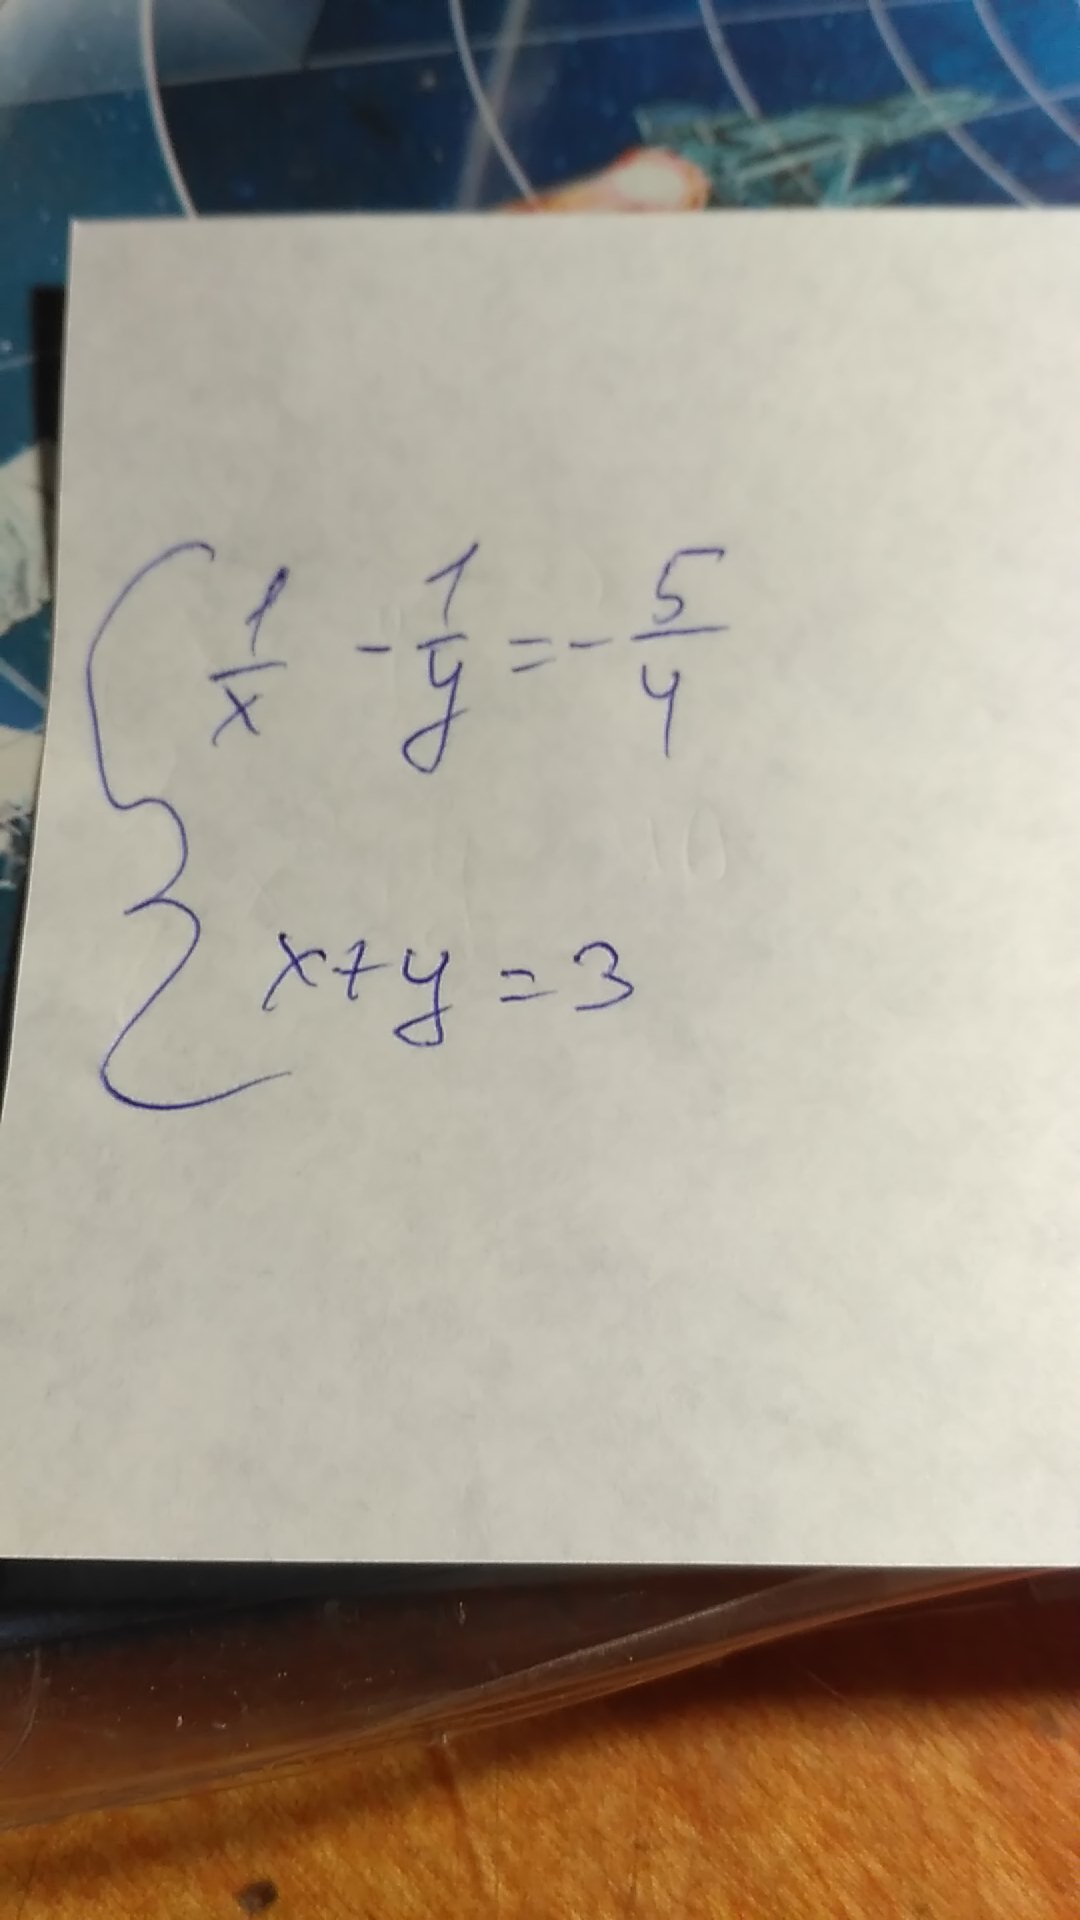 1/x - 1/y = - 5/4
x + y = 3